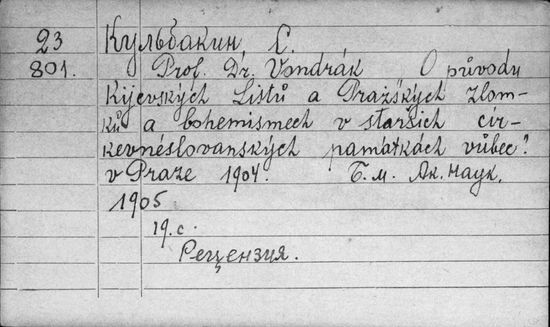 23 Кульбакин С.
801. Prof. Dr. Vondrák O původu
Kijevských Listů a Pražských zlom-
ků a bohemismech v starších cír-
kevněslovanských památkách vůbec?
v Praze 1904. Б.м. Ак. наук,
1905
19. с.
Рецензия.